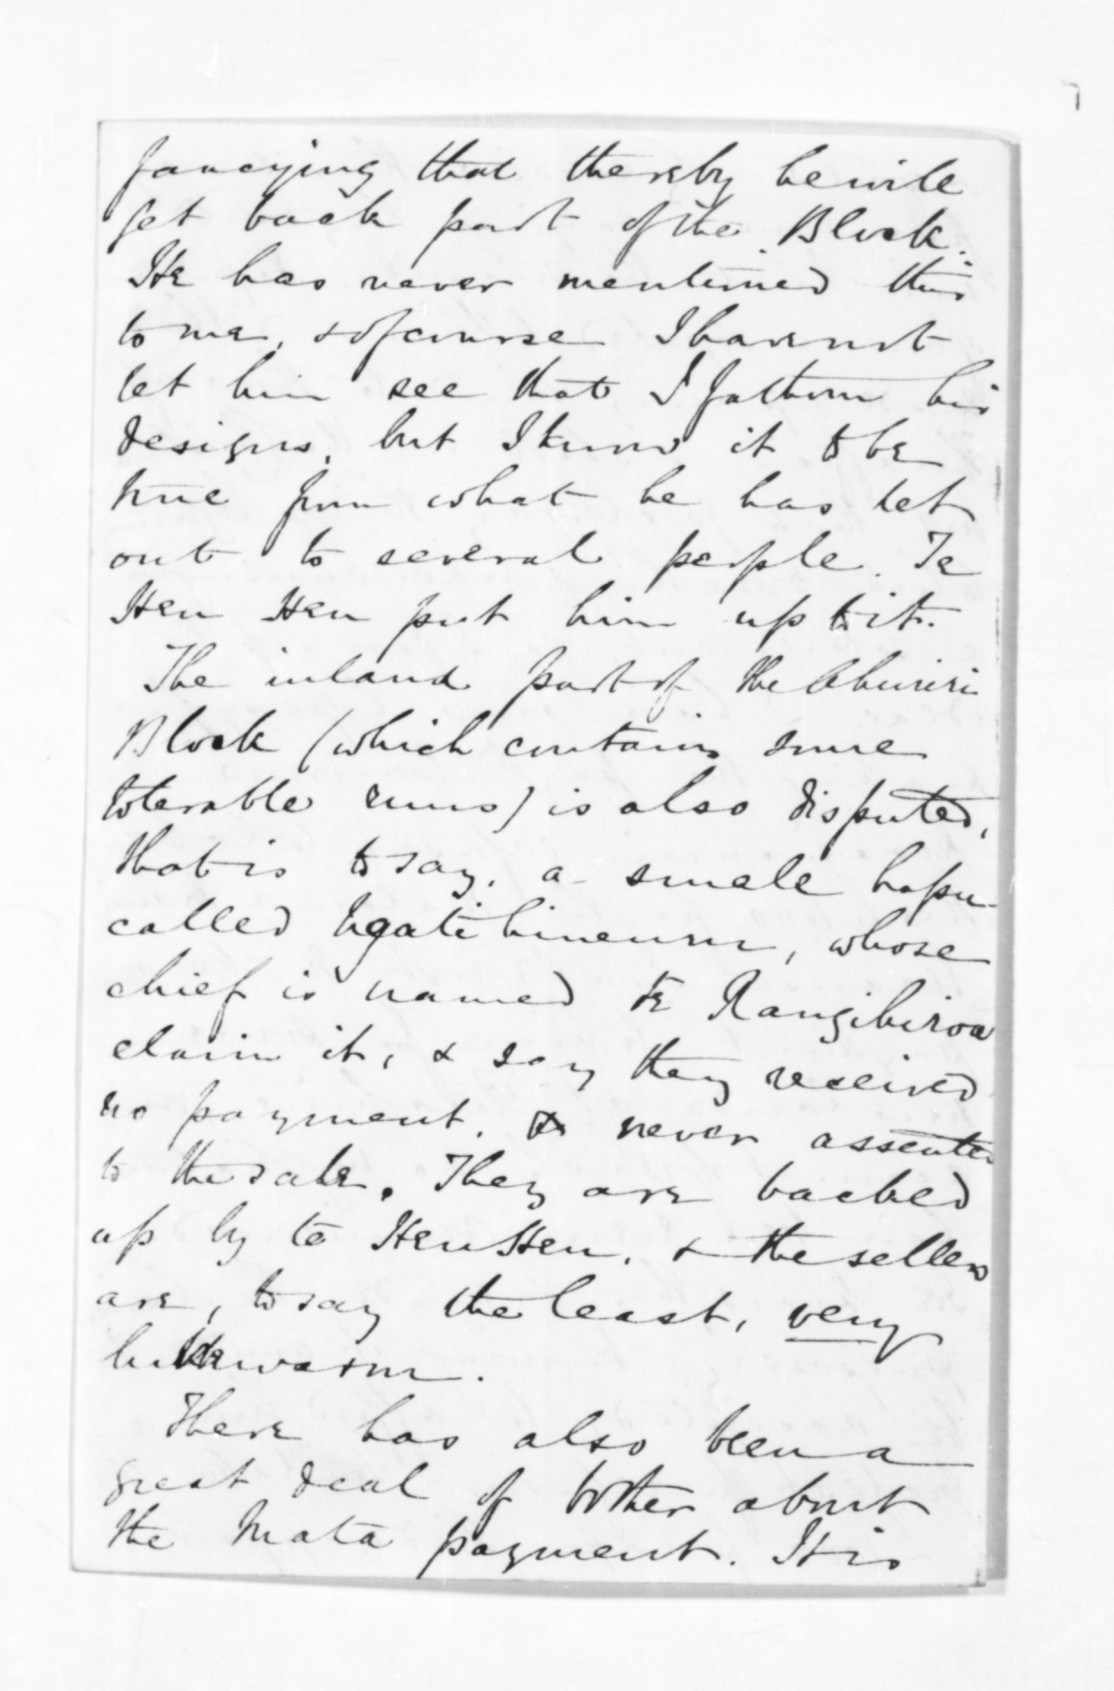 fancying that thereby he will
get back part of the Block.
He has never mentioned this
to me, & of course I have not
let him see that I fathom his
designs, but I know it to be
true from what he has let
out to several people. Te
Heu Heu put him up to it.
The inland part of the Ahuriri
Block (which contains some
tolerable runs) is also disputed,
that is to say, a small hapu
called Ngati hineuru, whose
chief is named te Rangihiroa
claim it, & say they received
no payment, & never assented
to the sale. They are backed
up by te Heu Heu, & the sellers
are, to say the least, very
lukewarm.
There has also been a
great deal of bother about
the Mata payment. It is